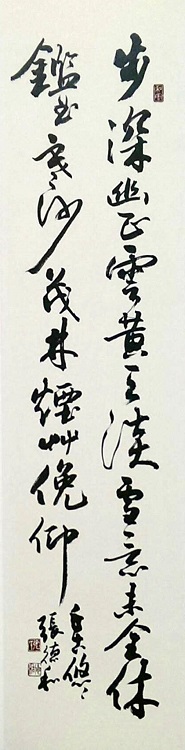 步深幽正雲黃天淡雪意未全休
鑑曲寒沙茂林煙艸俛仰
千古悠々
張德和